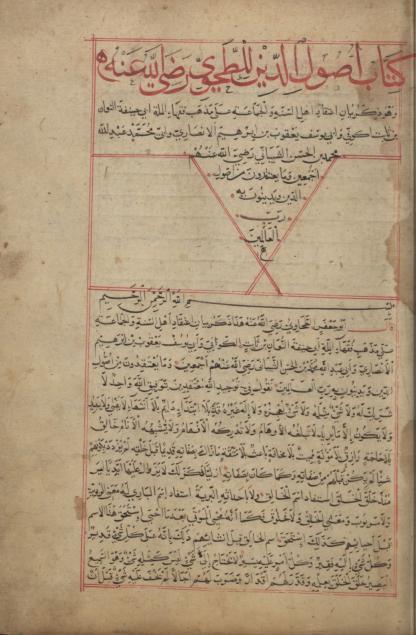 كتاب أصول الدين للطحاوي رضي الله عنه
وهو ذكر بيان اعتقاد اهل السنة والجماعة على مذهب فقهاء الملة ابي حنيفة النعمان
بن ثابت الكوفي وابي يوسف يعقوب بن ابراهيم الانصاري وابي محمد عبد الله
محمد بن الحسن الشيباني رضي الله عنهم
اجمعين وما يعتقدون من اصول
الدين ويدينون به
رب
العالمين
الله الرحمن الرحيم
ابو جعفر الطحاوي رضي الله عنه هذا ذكر بيان اعتقاد اهل السنة والجماعة
على مذهب فقهاء الملة ابي حنيفة النعمان بن ثابت الكوفي وابي يوسف يعقوب بن ابراهيم
الانصاري وابي عبد الله محمد بن الحسن الشيباني رضي الله عنهم اجمعين وما يعتقدون من اصول
الدين ويدينون به رب العالمين نقول في توحيد الله معتقدين بتوفيق الله واحد لا
شريك له ولا شيء مثله ولا شيء يعجزه ولا اله غيره قديم بلا ابتداء دائم بلا انتهاء لا يفنى ولا يبيد
ولا يكون الا ما يريد لا تبلغه الاوهام ولا تدركه الافهام ولا تشبهه الانام خالق
بلا حاجة رازق بلا مؤنة مميت بلا مخافة باعث بلا مشقة ما زال بصفاته قديما قبل خلقه لم يزدد بكونهم
شيئا لم يكن قبلهم من صفاته وكما كان بصفاته ازليا كذلك لا يزال عليها ابديا ليس
منذ خلق الخلق استفاد اسم الخالق ولا باحداثه البرية استفاد اسم الباري له معنى الربوبية
ولا مربوب ومعنى الخالق ولا مخلوق وكما انه محيي الموتى بعد ما احيى استحق هذا الاسم
قبل احيائهم كذلك استحق اسم الخالق قبل انشائهم ذلك بانه على كل شيء قدير
وكل شيء اليه فقير وكل امر عليه يسير لا يحتاج الى شيء ليس كمثله شيء وهو السميع
البصير خلق الخلق بعلمه وقدر لهم اقدارا وضرب لهم اجالا لم يخف عليه شيء قبل ان